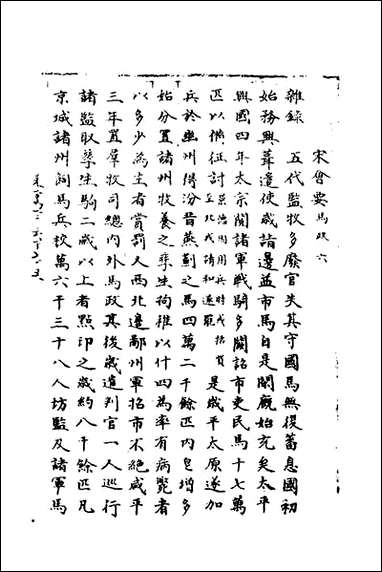 宋會要馬政六
雜錄　五代監牧多廢官失其守國馬無復蓄息國初
始務興葺遣使歲詣邊益市馬自是閑廐始充矣太平
興國四年太宗閲諸軍戰騎多闕詔市吏民馬十七萬
匹以備征討是歲平太原遂加
兵於幽州得汾晉燕薊之馬四萬二千餘匹内皂增多
始分置諸州牧養之孳生拘稚以什四爲率有病斃者
以多少爲主者賞罰又西北邊鄙州軍招市不絶咸平
三年置羣牧司總内外馬政其後歲遣判官一人巡行
諸監取孳生駒二歲以上者點印之歲約八千餘匹凡
京城諸州飼馬兵校萬六千三十八人坊監及諸軍馬